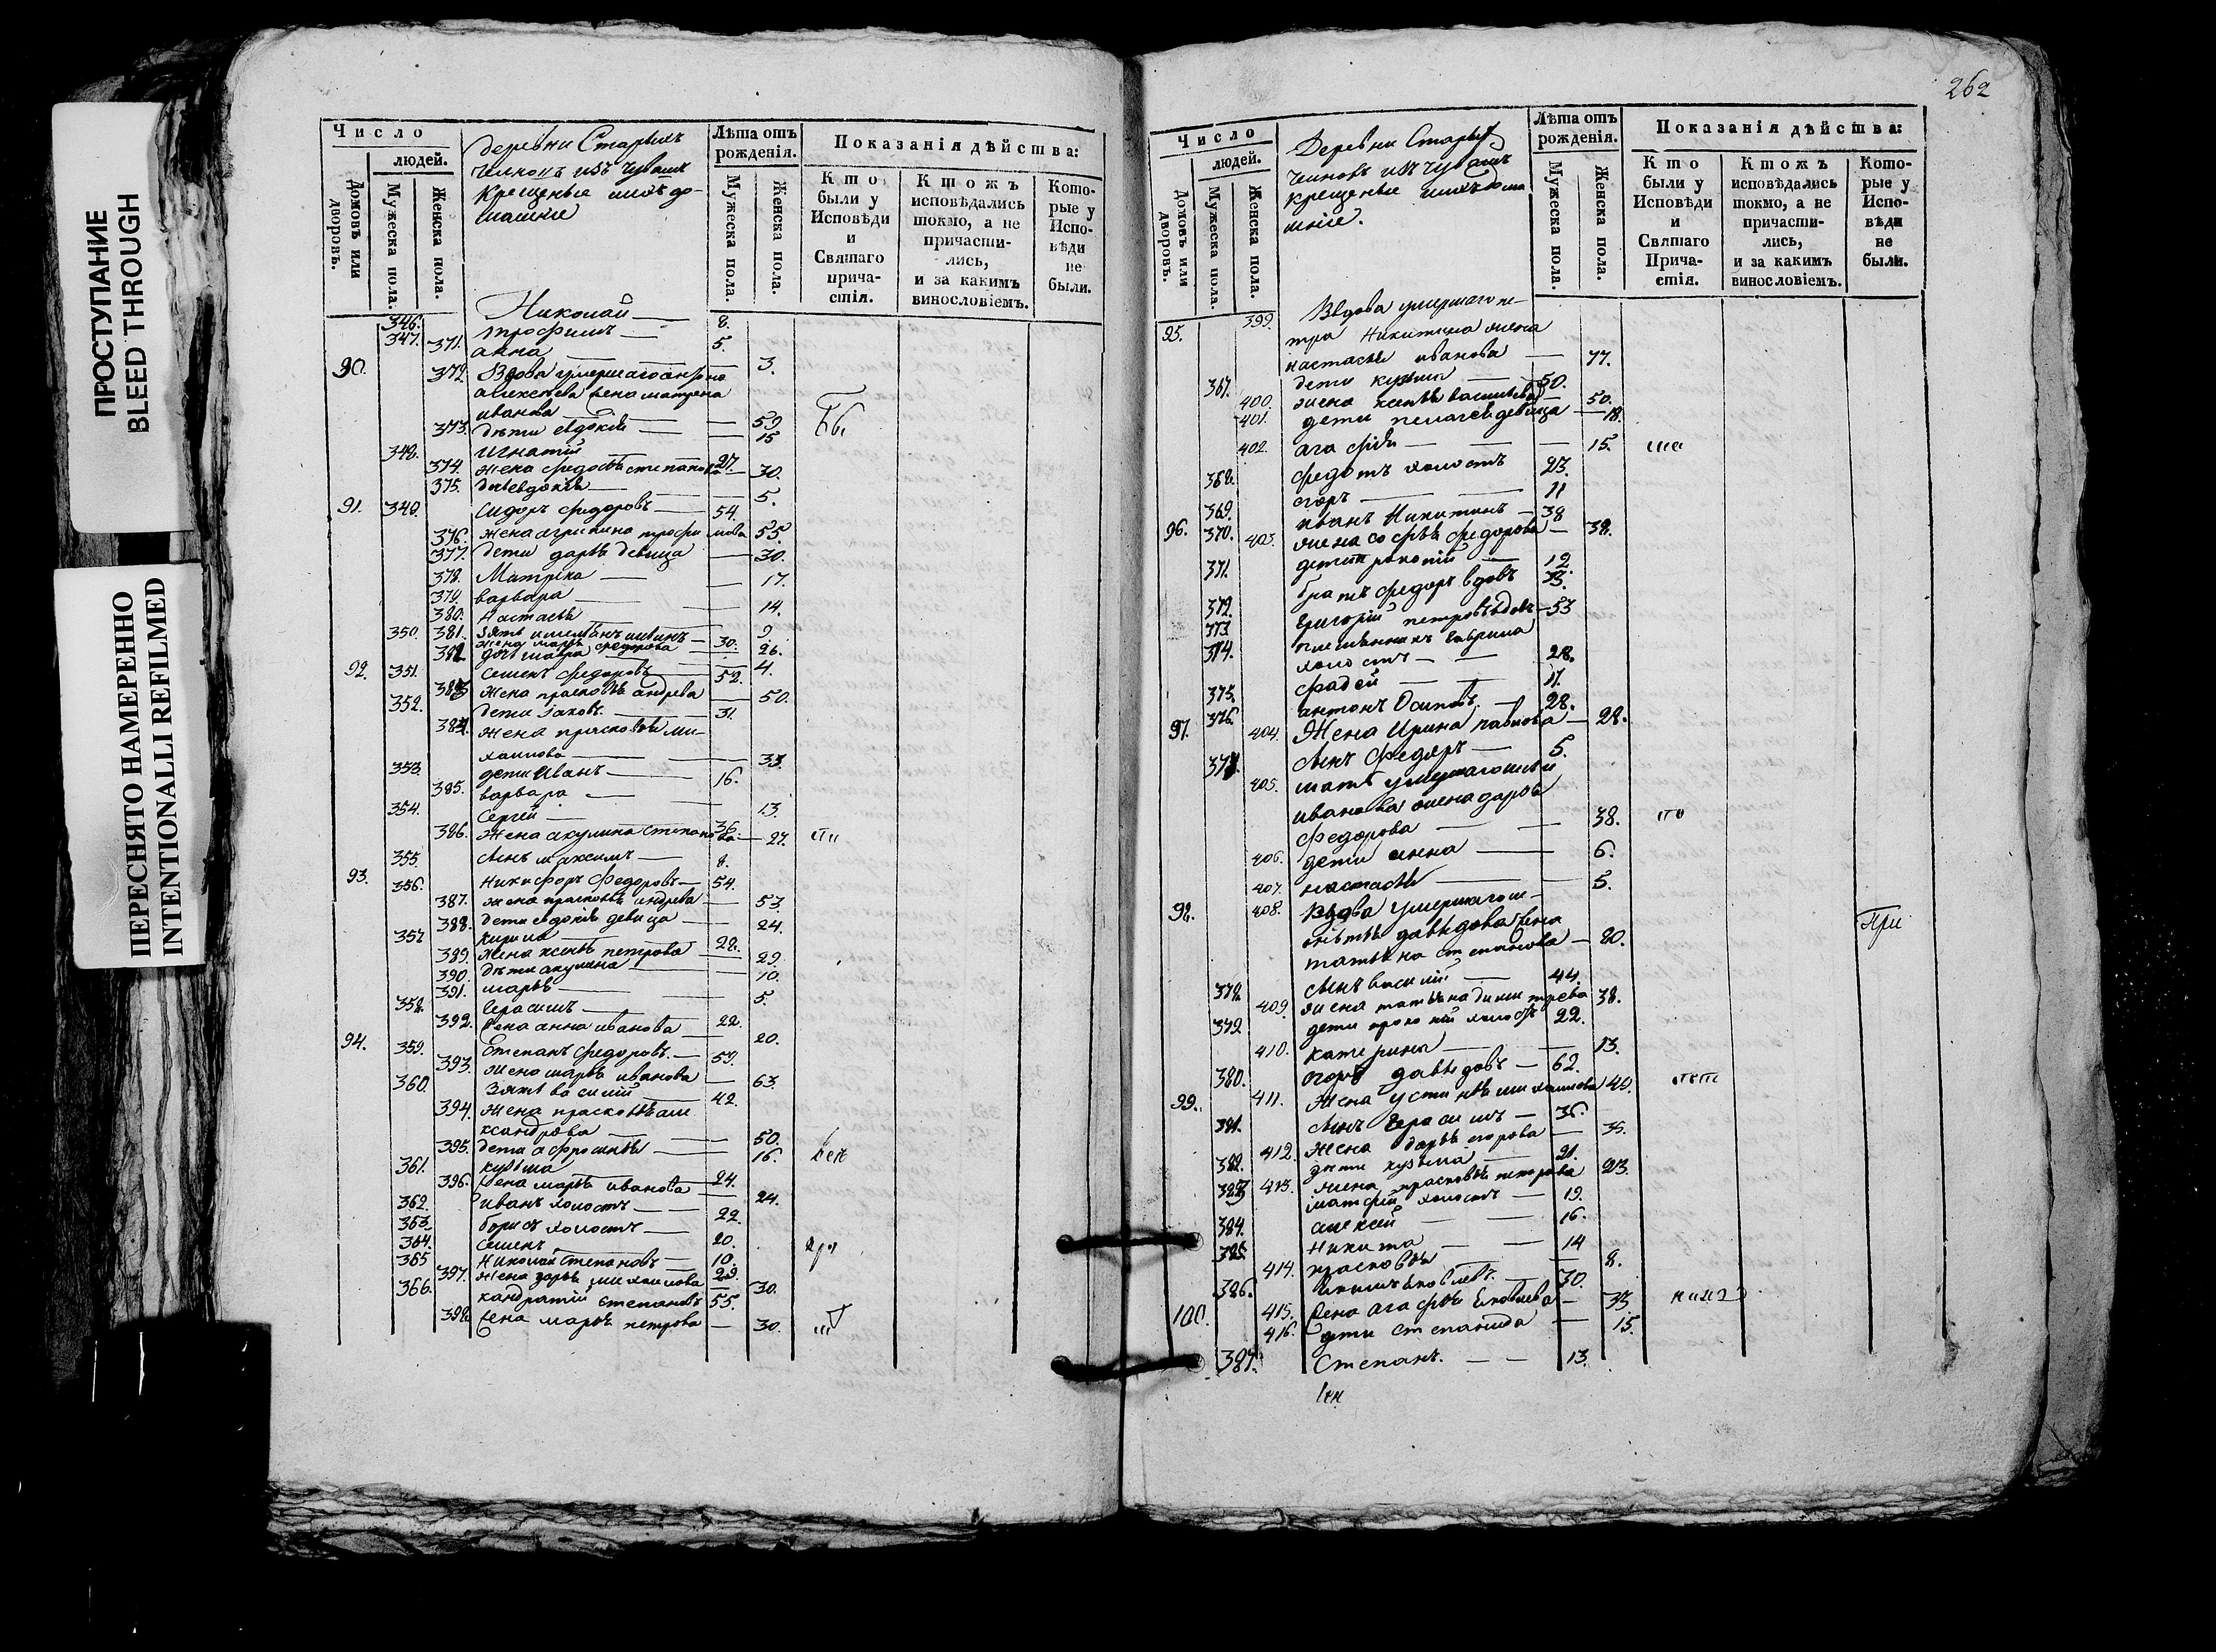 262
ПРОСТУПАНИЕ
BLEED THROUGH
ПЕРЕСНЯТО НАМЕРЕННО
INTENTIONALLI REFILMED
Число
людей.
Домовъ или дворовъ.
Мужеска пола.
Женска пола.
деревни Старыхъ
изъ чувашъ
крещеные ихъ до-
машніе
Лѣта отъ рожденія.
Мужеска пола.
Женска пола.
Показанія дѣйства:
Кто были у Исповѣди и Святаго прича-стія.
Ктожъ исповѣдались токмо, а не причасти-лись, и за какимъ винословіемъ.
Кото-рые у Испо-вѣди не были.
346. Николай — 8.
347. трофимъ — 5.
371. анна — 3.
90. 372. Вдова умершаго
алексеева жена матрена
иванова — 59
373. дѣти евдокия — 15
348. игнатій — 27.
374. жена федосья степанова — 30.
375. дочь евдокия — 5.
91. 349. Сидоръ федоровъ — 54.
376. жена агрипина трофимова 55.
377. дети дарья девица — 30.
378. Матрена — 17.
379. варвара — 14.
380. Настасья — 9.
350. 381. зять — 30.
жена марья федорова — 26.
382. дочь мавра — 4.
92. 351. семенъ федоровъ — 52.
383 жена прасковья андрева — 50.
352. дети яковъ — 31.
384. жена прасковья ми-
хаилова — 33.
353. дети Иванъ — 16.
385. варвара — 13.
354. Сергей — 36.
386. жена акулина степанова — 27.
355. сынъ максимъ — 8.
93. 356. Никифоръ Федоровъ — 54.
387. жена прасковья андрева — 53.
388. дети евдокия девица — 24.
357 кирила — 28.
389. жена ксенья петрова — 29.
390. дѣти акулина — 10.
391. марья — 5.
358. герасимъ — 22.
392. жена анна иванова — 20.
94. 359. Степанъ федоровъ — 59.
393. жена марья иванова — 63.
360. зять василий — 42.
394. жена прасковья але
ксандрова — 50.
395. дети афросинья — 16.
361. кузьма — 24.
396. жена марья иванова — 24.
362. иванъ холостъ — 22.
363. борисъ холостъ — 20.
364. семенъ — 10.
365 Николай степановъ — 29.
397. жена дарья михаилова — 30.
366. кандратій степановъ 55.
398. жена марья петрова — 30.
Число
людей.
Домовъ или дворовъ.
Мужеска пола.
Женска пола.
Деревни Старыхъ
изъ чувашъ
крещеные ихъ дома
шніе.
Лѣта отъ рожденія.
Мужеска пола.
Женска пола.
Показанія дѣйства:
Кто были у Исповѣди и Святаго Прича-стія.
Ктожъ исповѣдались токмо, а не причасти-лись, и за какимъ винословіемъ.
Кото-рые у Испо-вѣди не были.
95. 399. Вдова умершаго пе-
тра Никитина жена
настасья иванова — 77.
367. дети кузьма — 50.
400. жена ксенья васильева — 50.
401. дети пелагея девица — 18.
402. агафия — 15.
368. федотъ холостъ 23.
369. егоръ — 11
96. 370. иванъ Никитинъ — 38
403. жена софья федорова — 38.
371. дети — 12.
372. братъ федоръ вдовъ 33.
373 григорій петровъ вдовъ — 53
374. племянникъ гаврила
холостъ — 28.
375. фадей — 17.
97. 376. антонъ Осиповъ — 28.
404. Жена Ирина павлова — 28.
377. сынъ Федоръ — 5.
405. мать умершаго
иванова жена дарья
Федорова — 38.
406. дети анна — 6.
407. настасья — 5.
98. 408. Вдова умершаго
давыдова жена
татьяна степанова — 80. При
378. сынъ василий — 44.
409. жена татьяна димитрева 38.
379 дети холостъ 22.
410. катерина — 13.
99. 380. егоръ давыдовъ — 62.
411. жена устинья михаилова 40.
381. сынъ герасимъ — 36.
412. жена дарья егорова — 35.
382. дѣти кузьма — 21.
413. жена прасковья петрова 23.
383 матфей холостъ — 19.
384. алексей — 16.
385 Никита — 14
414. прасковья — 8.
100. 386. яковлевъ — 30.
415. жена агафья яковлева — 33.
416. дети степанида — 15.
387. Степанъ. — 13.